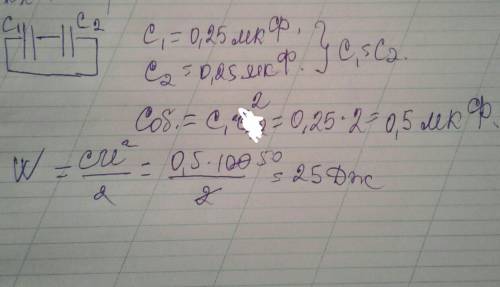 C₁ C₂ C₁ = 0,25 мкФ.
C₂ = 0,25 мкФ. } C₁ = C₂.
Cоб. = C₁ 2 = 0,25·2 = 0,5 мкФ.
W = cu²/2 = 0,5·100 50/2 = 25 Дж